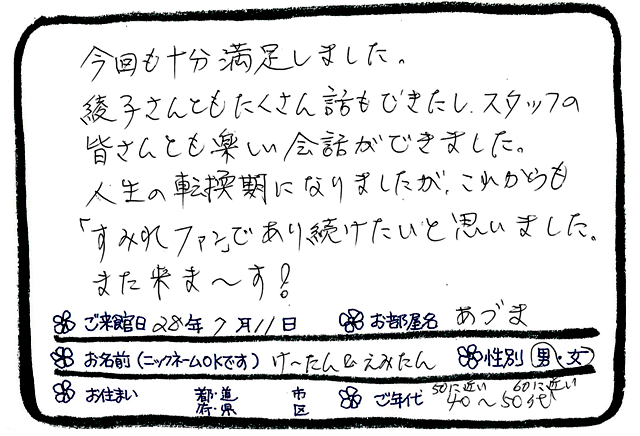 今回も十分満足しました。
綾子さんともたくさん話もできたし、スタッフの
皆さんとも楽しい会話ができました。
人生の転換期になりましたが、これからも
「すみれファン」であり続けたいと思いました。
また来ま〜す!
ご来館日 28年 7月11日 お部屋名 あづま
お名前(ニックネームOKです) けーたん&えみたん 性別(男・女)
お住まい 都・道 府・県 市 区 ご年代 50に近い 60に近い 40〜50代